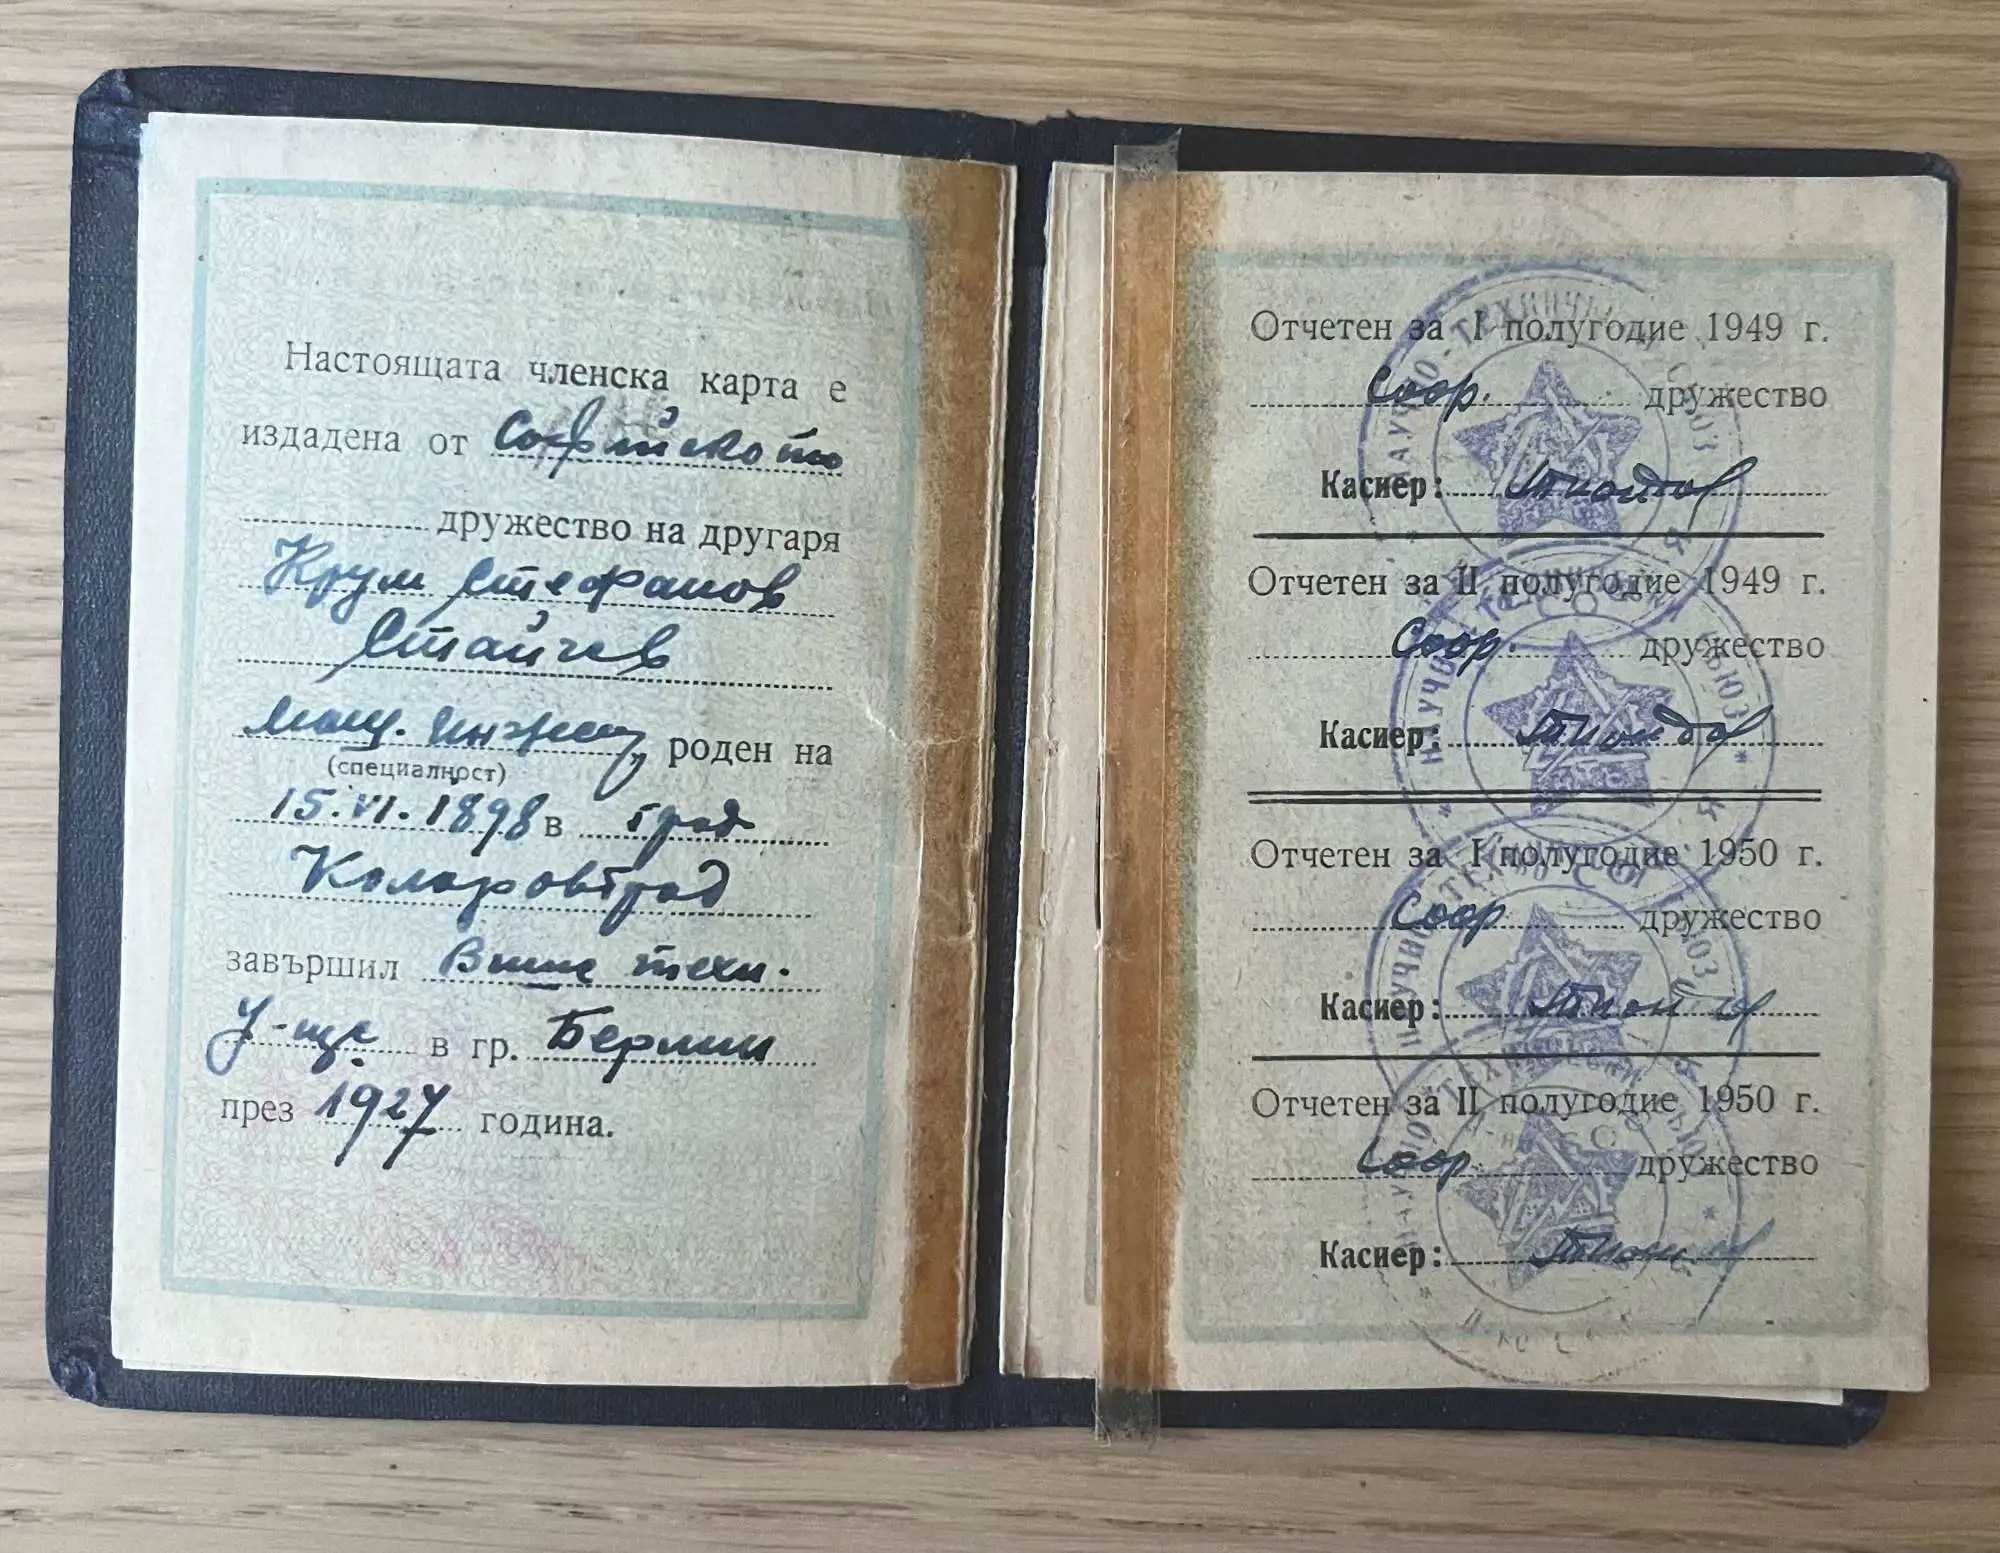 Настоящата членска карта е
издадена от Софийското
дружество на другаря
Крум Стефанов
Стайчев
Маш. инженер роден на
(специалност)
15.VI.1898 в град
Коларовград
завършил Висше техн.
у-ще в гр. Берлин
през 1927 година.
Отчетен за I полугодие 1949 г.
Соор. дружество
Касиер:
Отчетен за II полугодие 1949 г.
Соор. дружество
Касиер:
Отчетен за I полугодие 1950 г.
Соор дружество
Касиер:
Отчетен за II полугодие 1950 г.
Соор. дружество
Касиер: